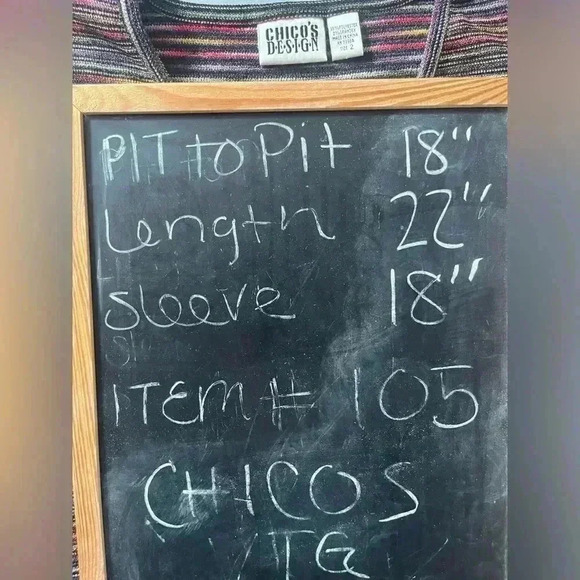 CHICO'S
DESIGN
SIZE 2
PIT to Pit 18"
Length 22"
Sleeve 18"
ITEM # 105
CHICOS
VTG